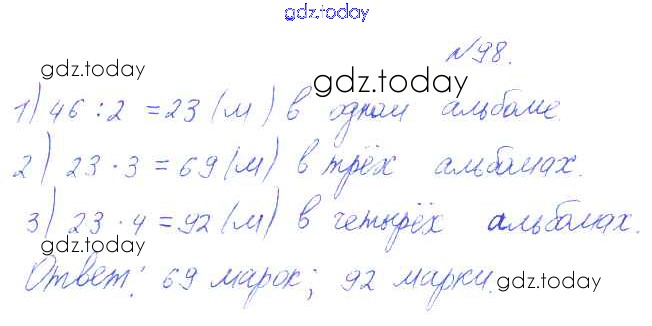 gdz.today
№98.
gdz.today gdz.today
1) 46 : 2 = 23 (м) в одном альбоме.
2) 23 · 3 = 69 (м) в трёх альбомах.
3) 23 · 4 = 92 (м) в четырёх альбомах.
gdz.today
Ответ: 69 марок; 92 марки.
gdz.today